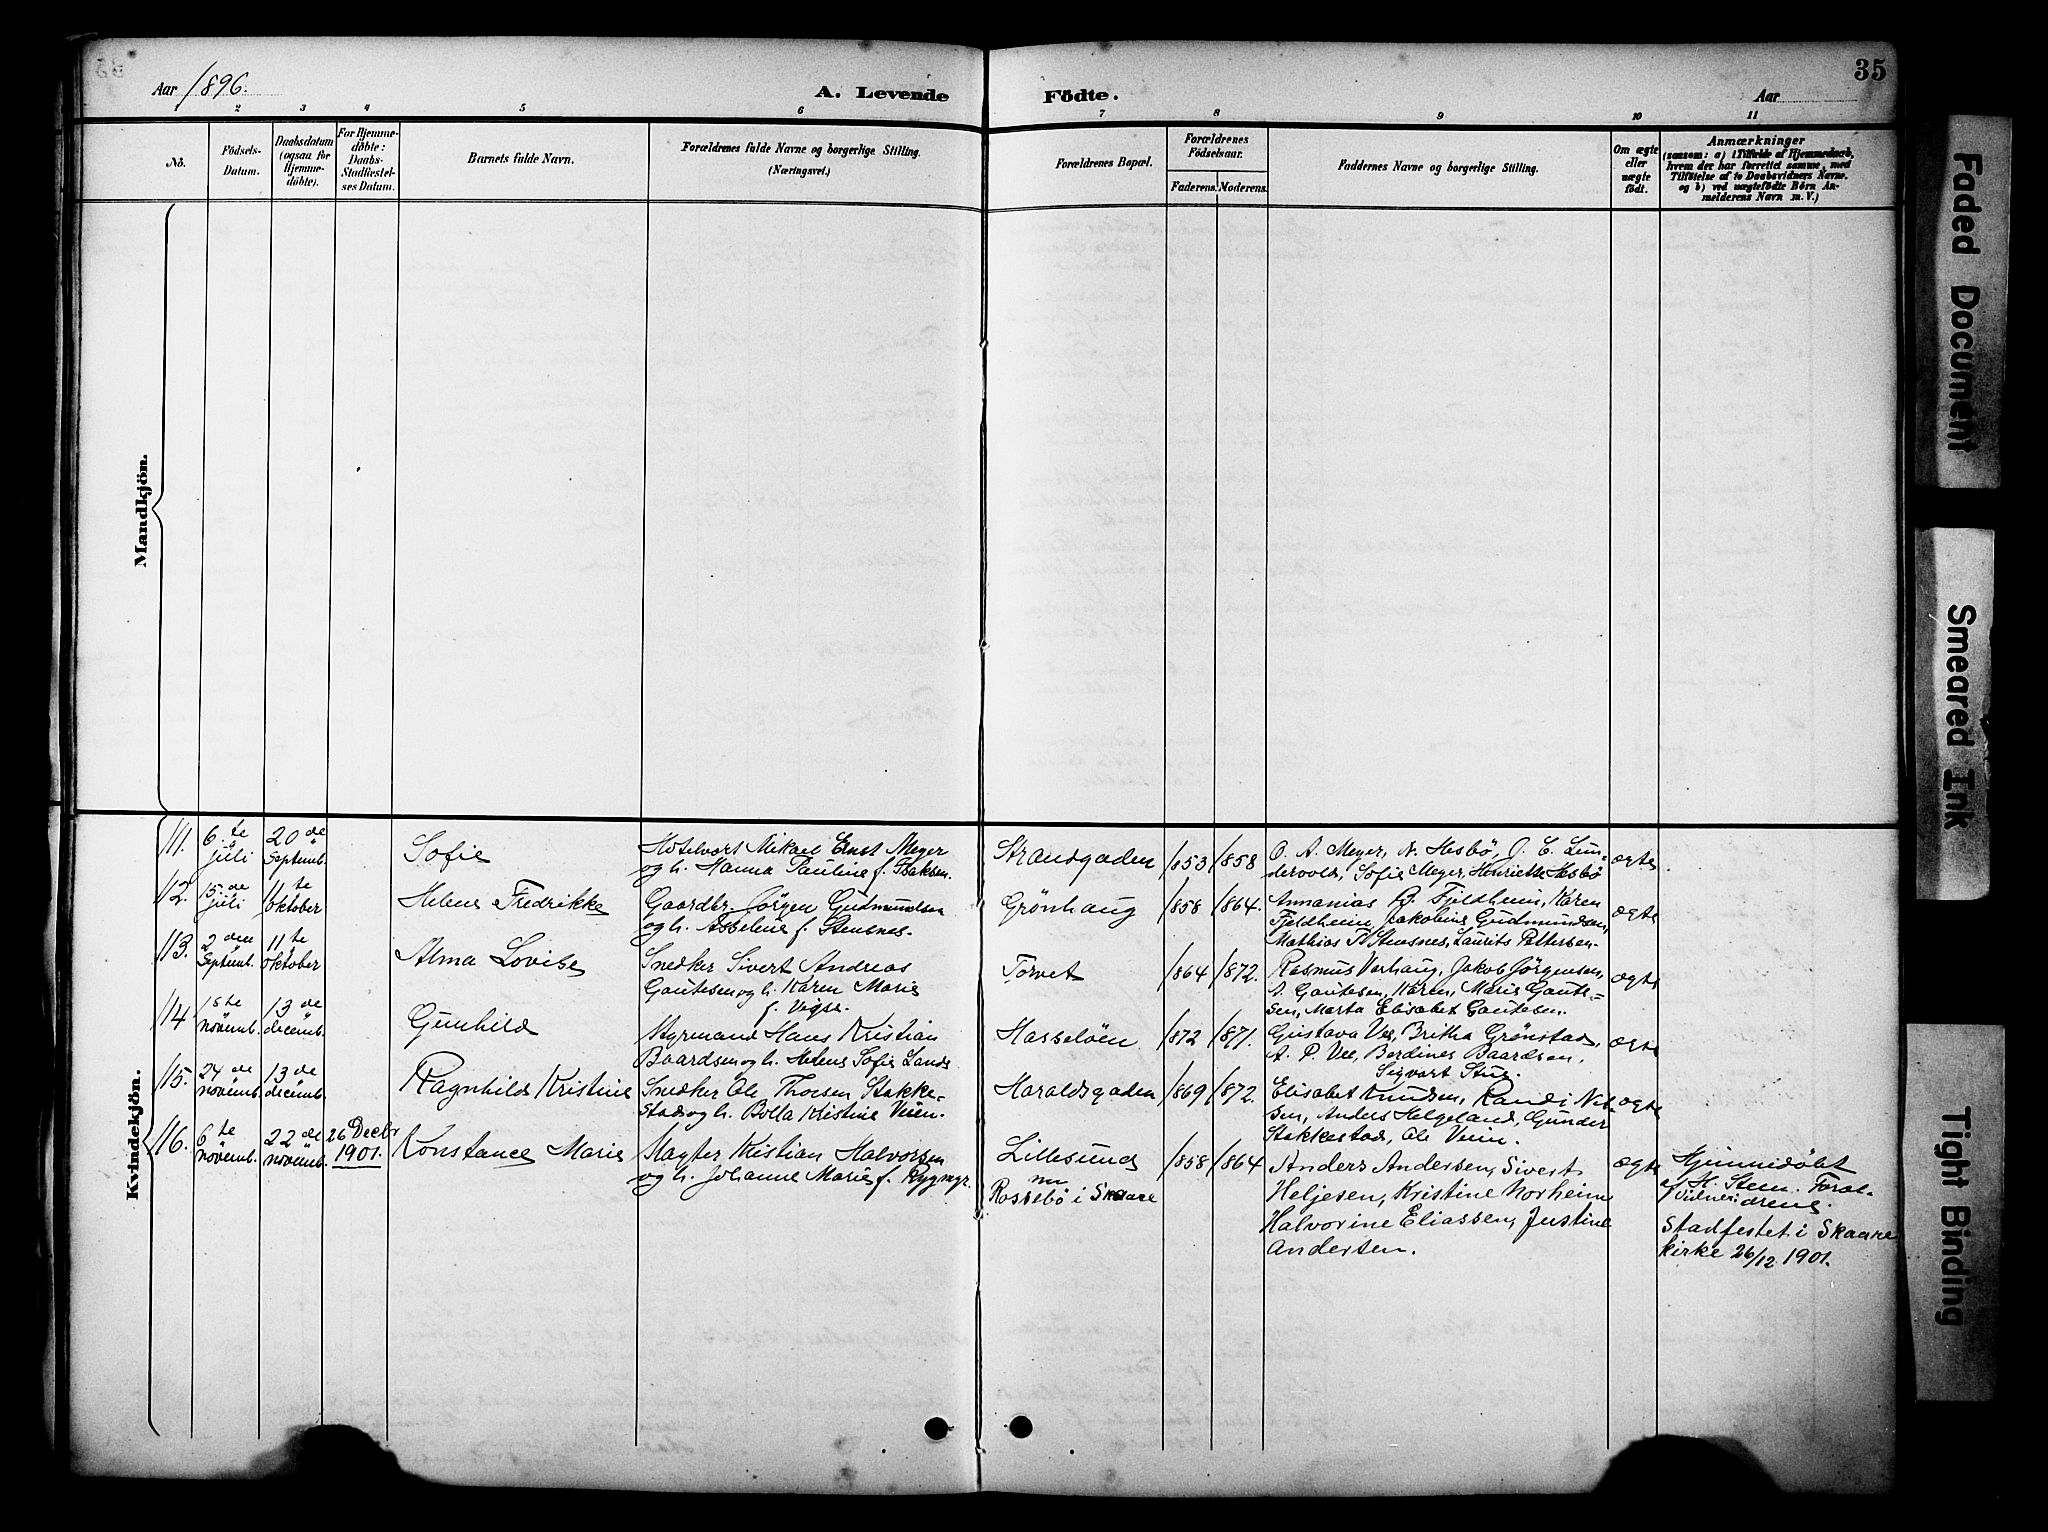 35
Aar 1896.
A. Levende Födte.
Aar
1 2 3 4 5 6 7 8 9 10 11
No.
Födsels-
Datum.
Daabsdatum
(ogsaa for
Hjemme-
döbte).
For Hjemme-
döbte:
Daabs-
Stadfæstel-
ses Datum.
Barnets fulde Navn.
Forældrenes fulde Navne og borgerlige Stilling.
(Næringsvei.)
Forældrenes Bopæl.
Forældrenes
Födselsaar.
Faderens. Moderens.
Faddernes Navne og borgerlige Stilling.
Om ægte
eller
uægte
födt.
Anmærkninger
(saasom: a) i Tilfælde af Hjemmedaab,
hvem der har forrettet samme, med
Tilföielse af to Daabsvidners Navne.
og b) ved uægtefödte Börn An-
melderens Navn m. V.)
Mandkjön.
Kvindekjön.
111. 6te juli
20de Septemb.
Sofie
Hotelvært Mikael Ernst Meyer
og h. Hanna Pauline f. Isaksen.
Strandgaden
1853 1858
O. A. Meyer, N. Hesbö, J. C. Lun-
dervold, Sofie Meyer, Henriette Hesbö
ægte
112. 15de juli
11te Oktober
Helene Fredrikke
Gaardbr. Jörgen Gudmundsen
og h. Asseline f. Stensnes.
Grönhaug
1858 1864.
Annanias B. Fjeldheim, Karen
Fjeldheim, Jakobine Gudmundsen,
Mathias P. Stensnes, Laurits Pettersen.
ægte
113. 2den Septemb.
11te Oktober
Alma Lovise
Snedker Sivert Andreas
Gautesen og h. Karen Marie
f. Vigse.
Torvet
1864 1872.
Rasmus Varhaug, Jakob Jörgensen,
A. Gautesen, Karen, Marie Gaute-
sen, Marta Elisabet Gautesen.
ægte
114 1ste novemb.
13de decemb.
Gunhild
Styrmand Hans Kristian
Baardsen og h. Helene Sofie Lande
Hasselöen
1872 1871.
Gustava Vee, Britha Grönstad,
A. P. Vee, Berdines Baardsen,
Sigvart Stue.
ægte
115. 24de novemb.
13de decemb.
Ragnhild Kristine
Snedker Ole Thorsen Stakke-
stad og h. Bolla Kristine Veien.
Haraldsgaden
1869 1872.
Elisabet Knudsen, Randi Nil-
sen, Anders Helgeland, Gunder
Stakkestad, Ole Veien.
ægte
116. 6te novemb.
22de novemb.
26 Decbr
1901.
Konstance Marie
Magter Kristian Halvorsen
og h. Johanne Marie f. Rygmyr.
Lillesund
nu
Rossebö i Skaare
1858 1864
Anders Andersen, Sivert
Heljesen, Kristine Norheim
Halvorine Eliassen, Justine
Andersen.
ægte
Hjemmedöbt
af H. Steen. Foræl-
Vidner: drene.
Stadfestet i Skaare
kirke 26/12 1901.
Faded Document
Smeared Ink
Tight Binding